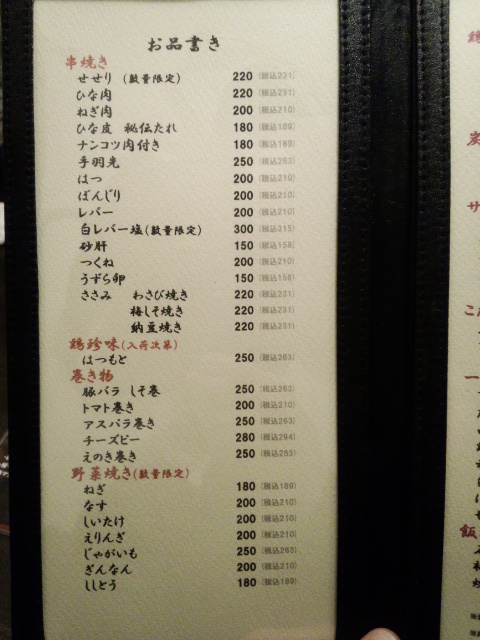 お品書き
串焼き
せせり (数量限定) 220 (税込231)
ひな肉 220 (税込231)
ねぎ肉 200 (税込210)
ひな皮 秘伝たれ 180 (税込189)
ナンコツ肉付き 180 (税込189)
手羽先 250 (税込263)
はつ 200 (税込210)
ぼんじり 200 (税込210)
レバー 200 (税込210)
白レバー塩(数量限定) 300 (税込315)
砂肝 150 (税込158)
つくね 200 (税込210)
うずら卵 150 (税込158)
ささみ わさび焼き 220 (税込231)
梅しそ焼き 220 (税込231)
納豆焼き 220 (税込231)
鶏珍味(入荷次第)
はつもと 250 (税込263)
巻き物
豚バラ しそ巻 250 (税込263)
トマト巻き 200 (税込210)
アスパラ巻き 250 (税込263)
チーズピー 280 (税込294)
えのき巻き 250 (税込263)
野菜焼き(数量限定)
ねぎ 180 (税込189)
なす 200 (税込210)
しいたけ 200 (税込210)
えりんぎ 200 (税込210)
じゃがいも 250 (税込263)
ぎんなん 200 (税込210)
ししとう 180 (税込189)